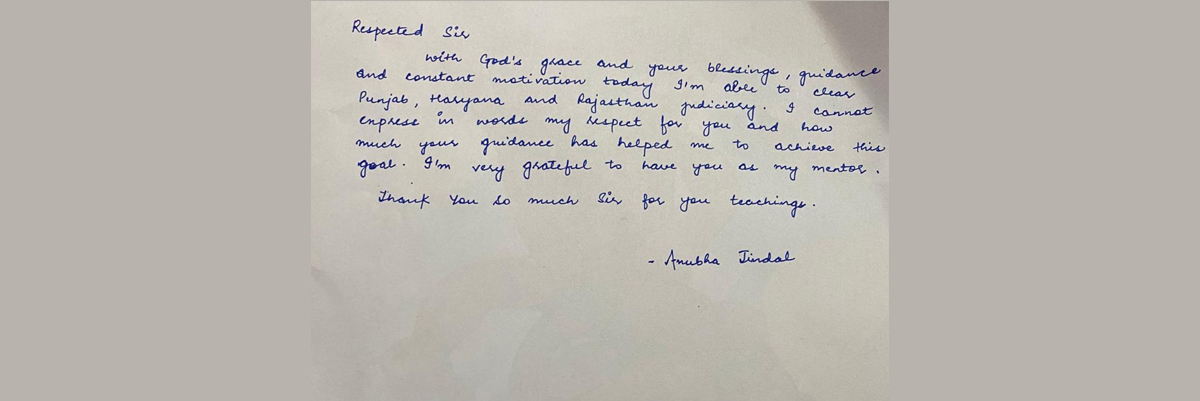 Respected Sir
with God's grace and your blessings, guidance
and constant motivation today I'm able to clear
Punjab, Haryana and Rajasthan judiciary. I cannot
express in words my respect for you and how
much your guidance has helped me to achieve this
goal. I'm very grateful to have you as my mentor.
Thank You so much Sir for you teachings.
- Anubha Jindal